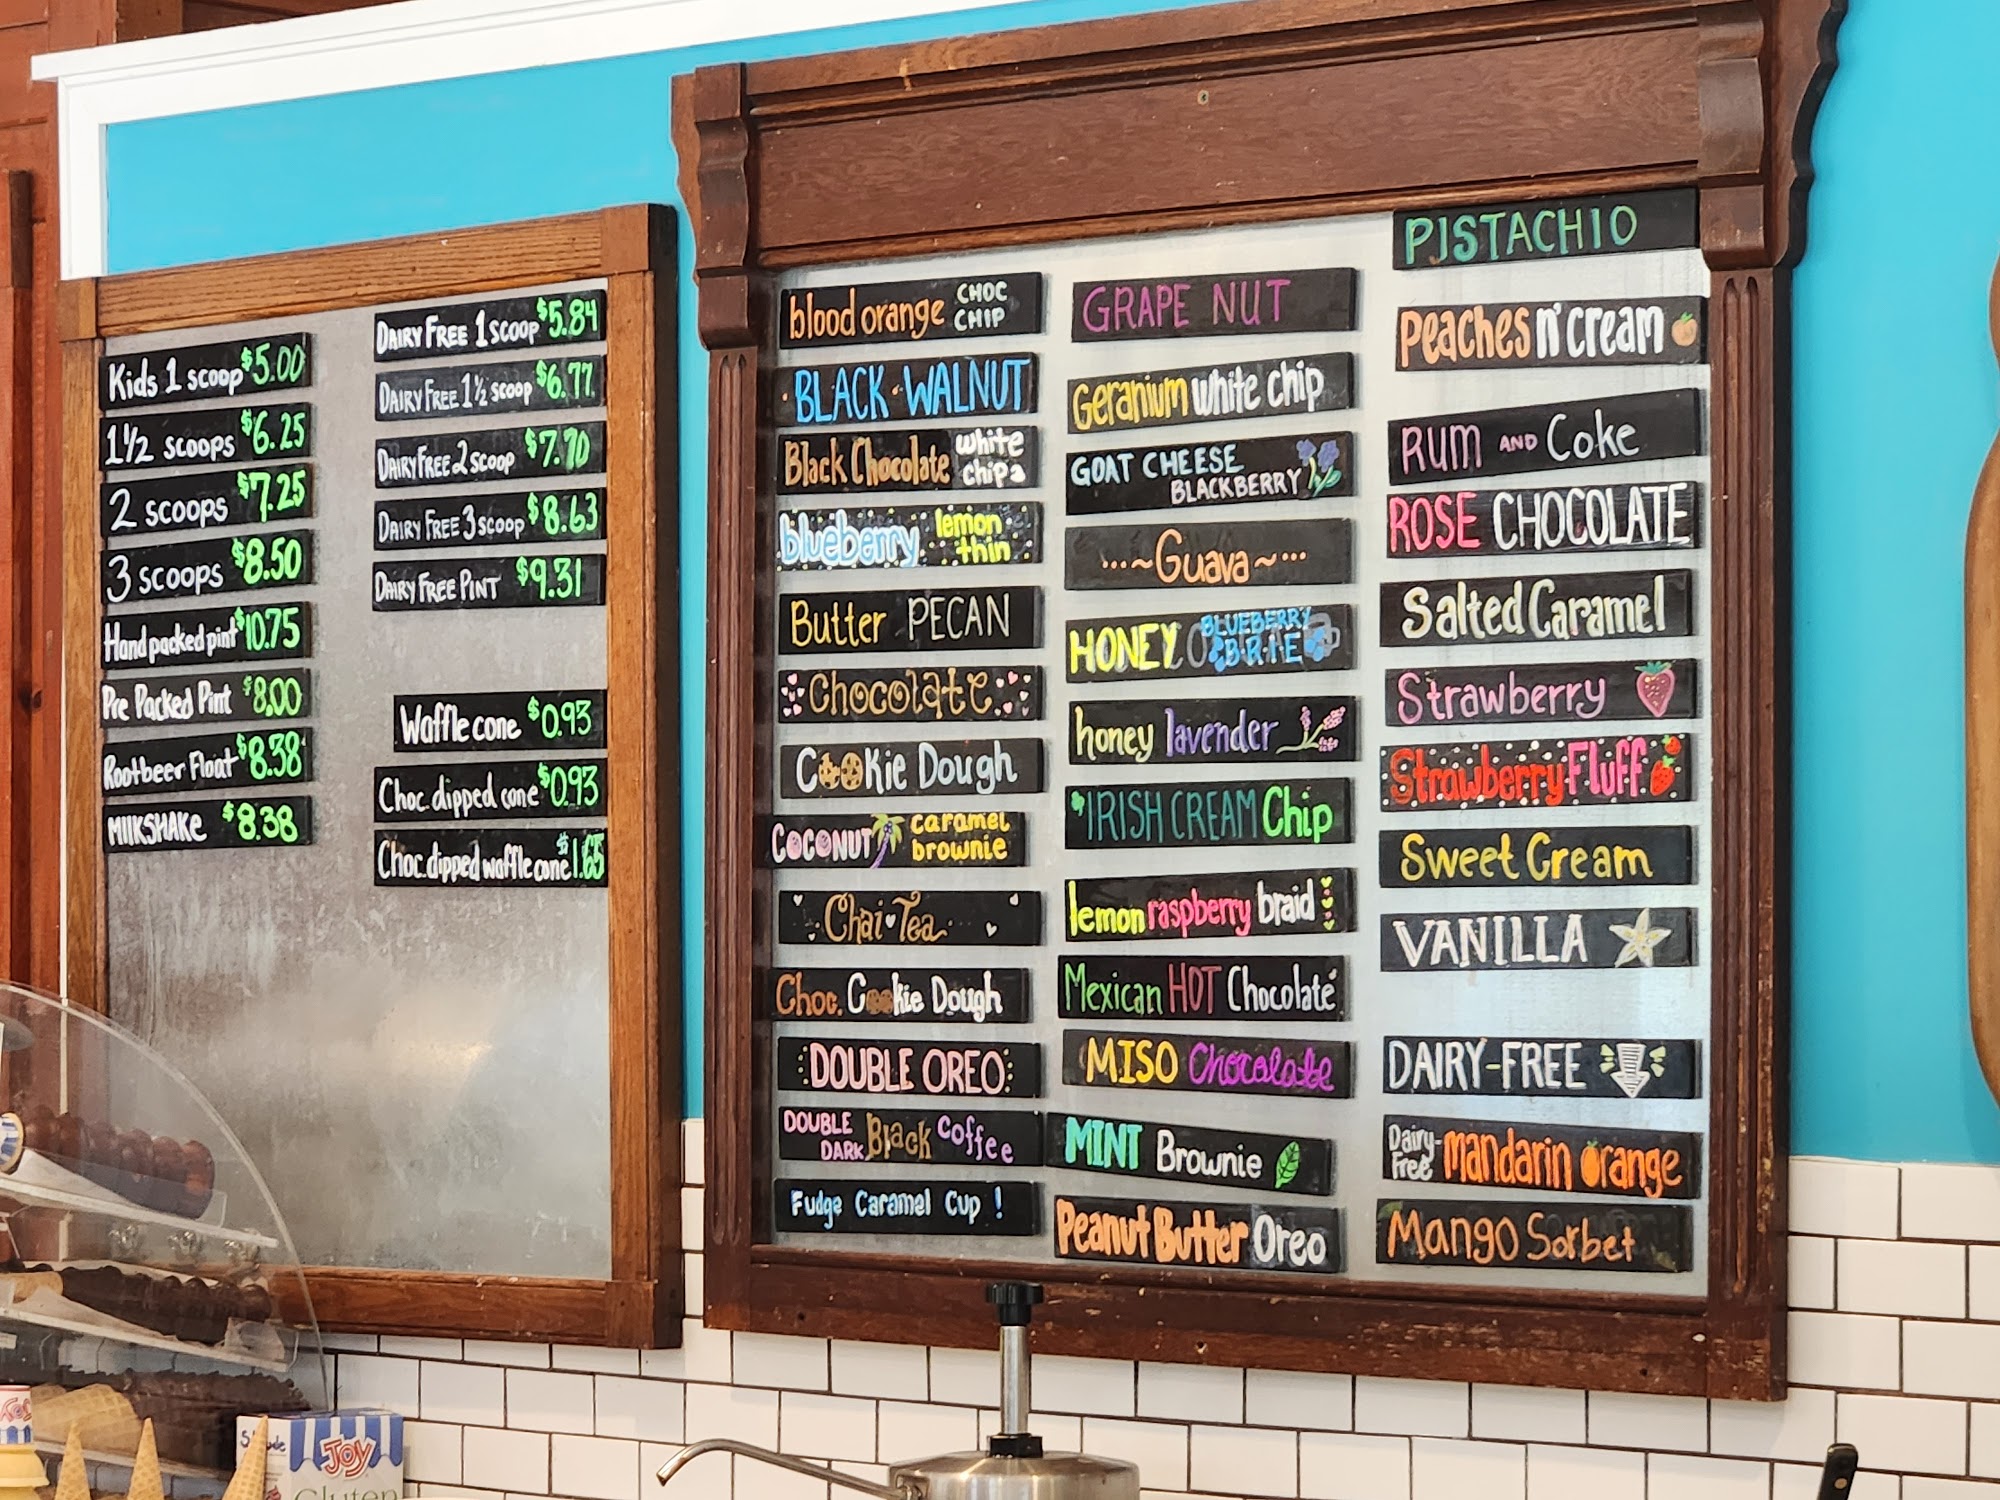 Kids 1 scoop $5.00
1½ scoops $6.25
2 scoops $7.25
3 scoops $8.50
Hand packed pint $10.75
Pre Packed Pint $8.00
Rootbeer Float $8.38
MilkSHAKE $8.38
DAIRY FREE 1 scoop $5.84
DAIRY FREE 1½ scoop $6.77
DAIRY FREE 2 scoop $7.70
DAIRY FREE 3 scoop $8.63
DAIRY FREE PINT $9.31
Waffle cone $0.93
Choc. dipped cone $0.93
Choc. dipped waffle cone $1.65
blood orange CHOC
CHIP
BLACK·WALNUT
Black Chocolate white
chips
blueberry lemon
thin
Butter PECAN
Chocolate
Cookie Dough
COCONUT caramel
brownie
Chai Tea
Choc. Cookie Dough
DOUBLE OREO
DOUBLE
DARK Black Coffee
Fudge Caramel Cup !
GRAPE NUT
Geranium white chip
GOAT CHEESE
BLACKBERRY
~Guava~
HONEY BLUEBERRY
BRIE
honey lavender
IRISH CREAM Chip
lemon raspberry braid
Mexican HOT Chocolate
MISO Chocolate
MINT Brownie
Peanut Butter Oreo
PISTACHIO
Peaches n' cream
RUM AND Coke
ROSE CHOCOLATE
Salted Caramel
Strawberry
Strawberry Fluff
Sweet Cream
VANILLA
DAIRY-FREE
Dairy-
Free mandarin orange
Mango Sorbet
JOY
Gluten